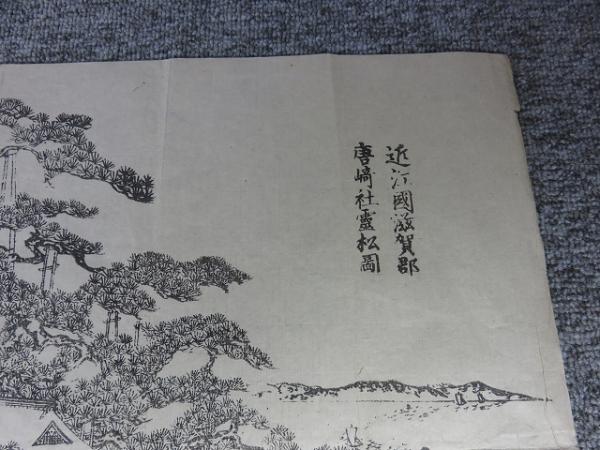 近江國滋賀郡
唐崎社靈松圖